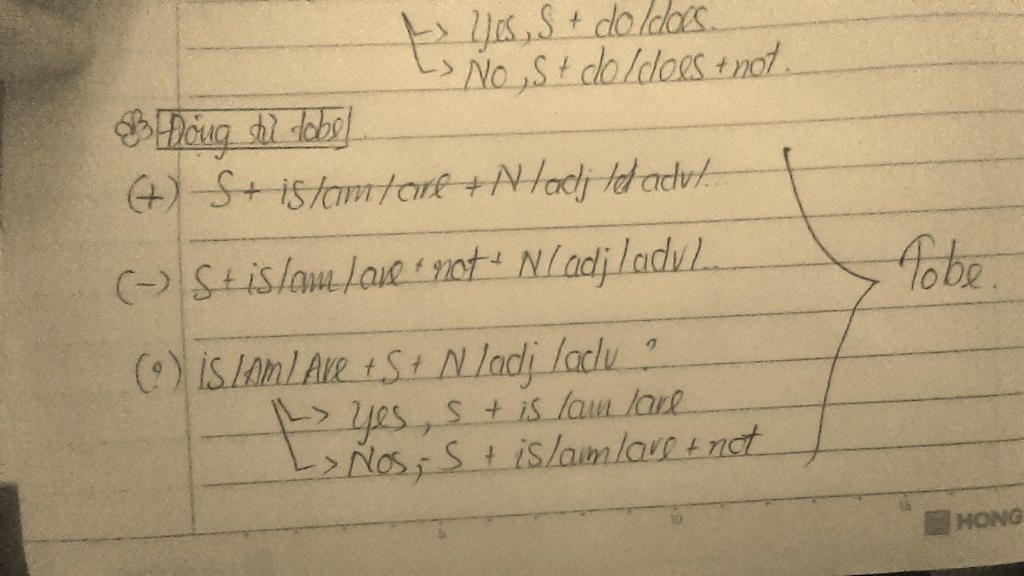 Yes, S + do/does.
No, S + do/does + not.
Động từ tobe
(+) S + is/am/are + N/adj /adv/..
(-) S + is/am/are + not + N/adj/adv/..
Tobe.
(?) is/Am/Are + S + N/adj/adv ?
Yes, S + is/am/are
No, S + is/am/are + not
5 10 15
HONG